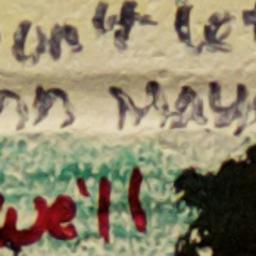 on't let
nn May
we'll